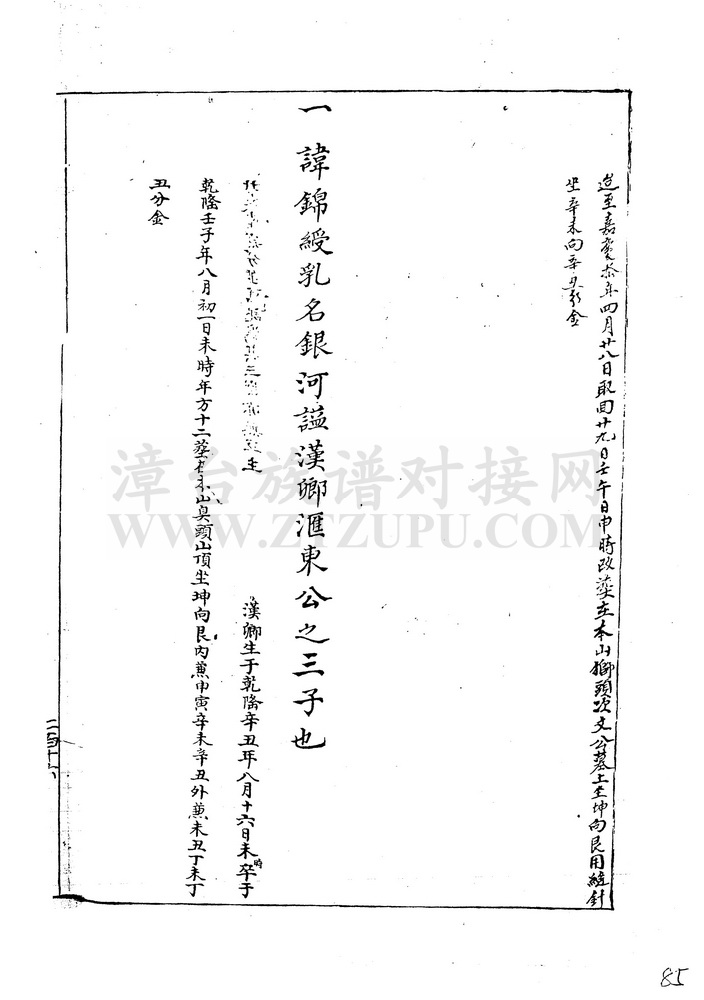 迨至嘉慶拾年四月廿八日取回廿九日壬午日申時改塟在本山獅頭次文公墓上坐坤向艮用縫針
坐辛未向辛丑分金
一諱錦綬乳名銀河謚漢卿滙東公之三子也
漢卿生于乾隆辛丑年八月十六日未時卒于
乾隆壬子年八月初一日未時年方十二塟在本山奐頭山頂坐坤向艮內兼申寅辛未辛丑外兼未丑丁未丁
丑分金
二百十六
漳台族谱对接网
WWW.ZTZUPU.COM
85